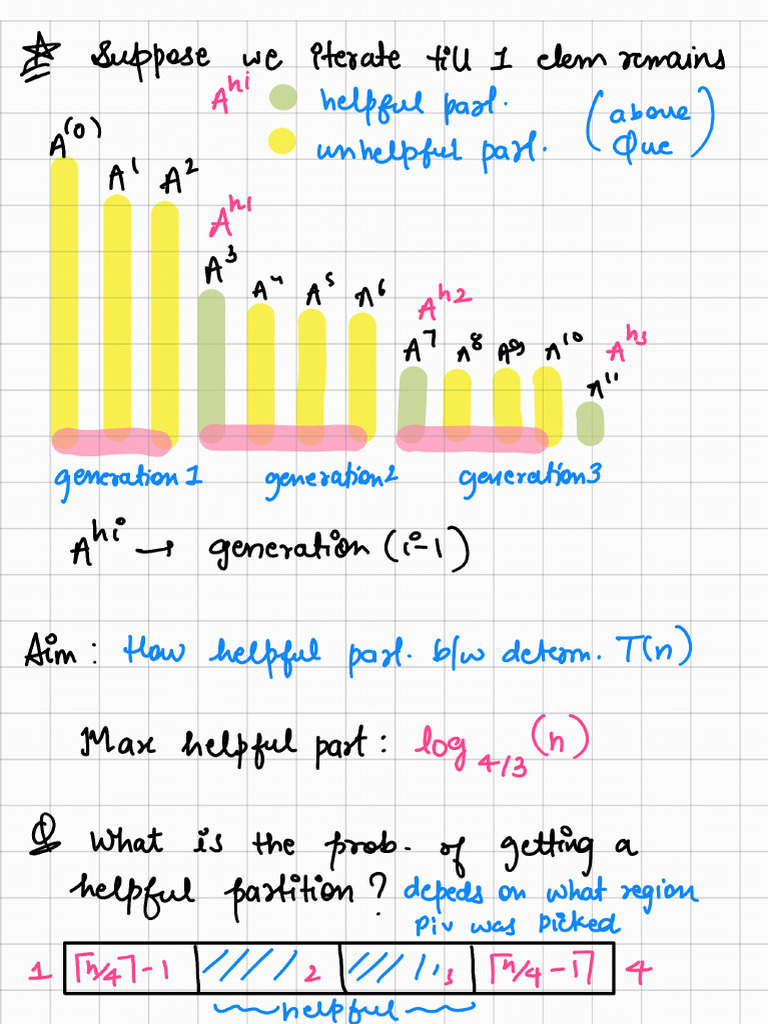 Suppose we iterate till 1 elem remains
A^hi helpful part. (above
unhelpful part. Que)
A^(0) A^1 A^2 A^h1
A^3 A^4 A^5 A^6 A^h2
A^7 A^8 A^9 A^10 A^h3
A^11
generation 1 generation 2 generation 3
A^hi → generation (i-1)
Aim : How helpful part. b/w determ. T(n)
Max helpful part : log_4/3 (n)
Q What is the prob. of getting a
helpful partition ? depeds on what region
piv was picked
1 ⌈n/4⌉-1 2 3 ⌈n/4-1⌉ 4
helpful